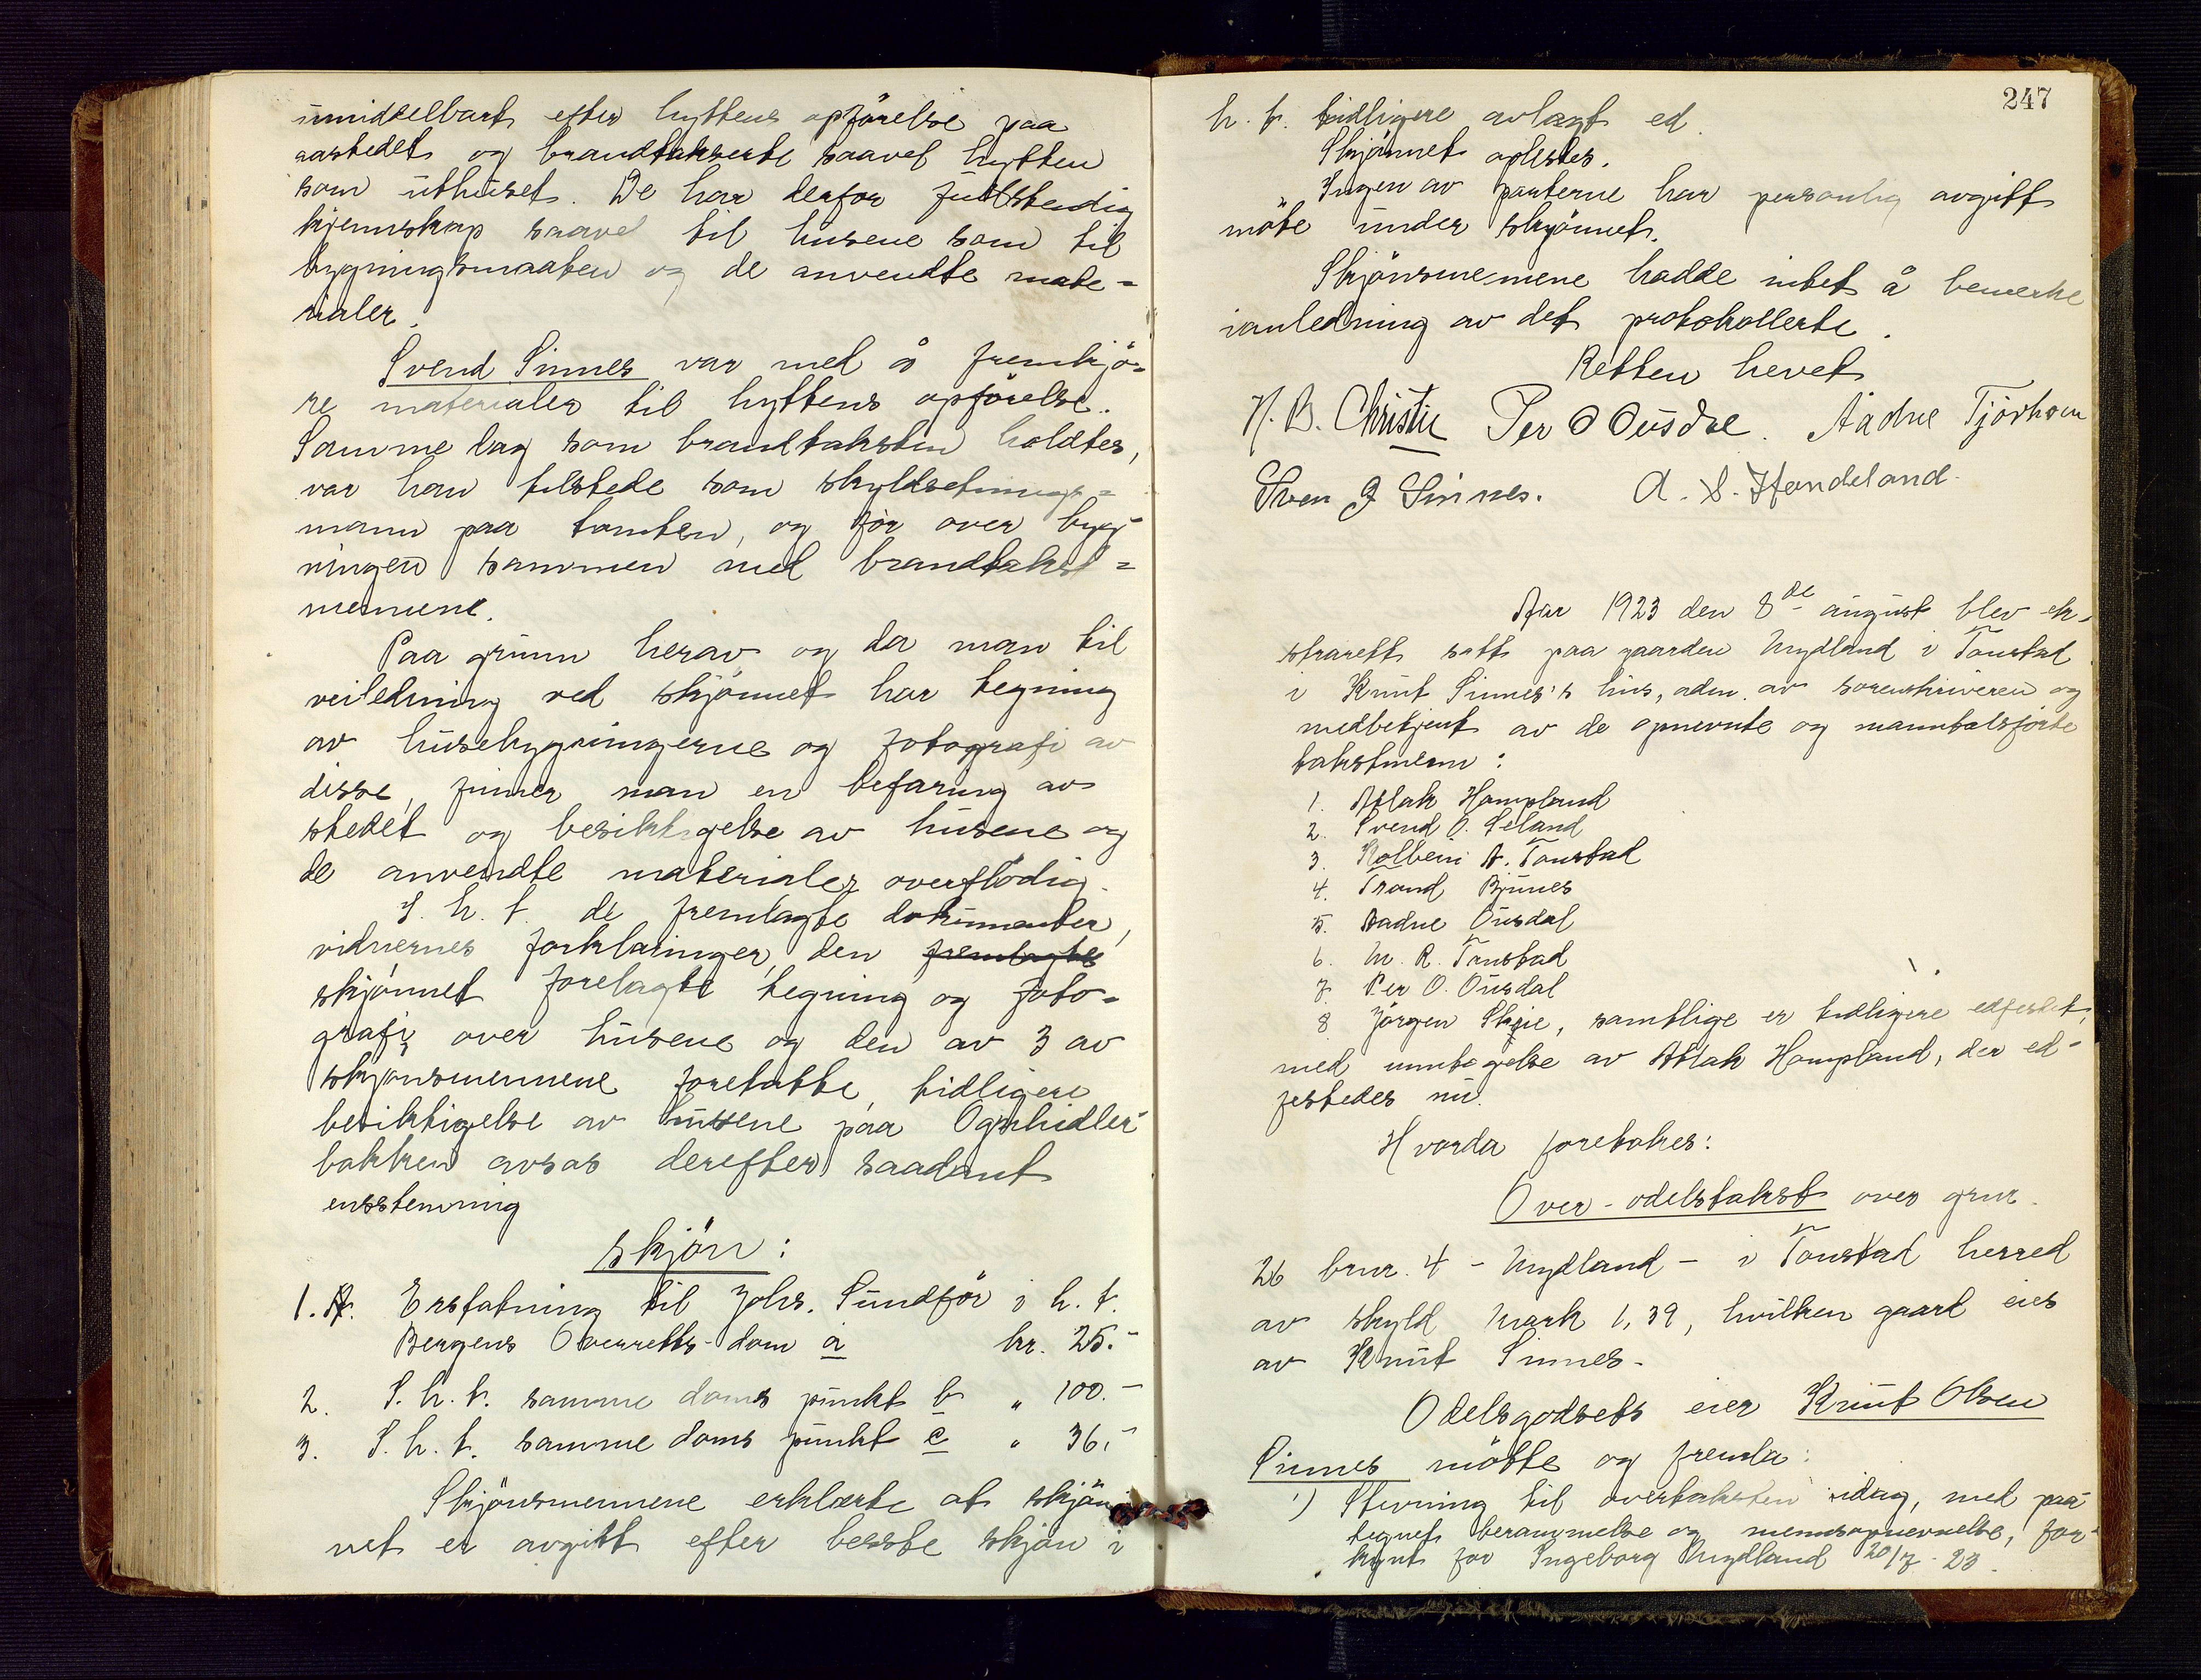 umiddelbart efter hyttens opförelse paa
aastedet og brandtakserte saavel hytten
som uthuset. De har derfor fuldstendig
kjennskap saavel til husene som til
bygningsmaaten og de anvendte mate=
rialer.
Svend Sinnes var med å fremkjö=
re materialer til hyttens opförelse.
Samme dag som brandtaksten holdtes,
var han tilstede som skyldsetnings=
mann paa tomten, og för over byg-
ningen sammen med brandtakst=
mennene.
Paa grunn herav og da man til
veiledning ved skjönnet har tegning
av husebygningerne og fotografi av
disse, finner man en befaring av
stedet og besiktigelse av husene og
de anvendte materialer overflödig.
I. h. t. de fremlagte dokumenter,
vidnernes forklaringer, den fremlagte
skjönnet forelagte tegning og foto=
grafi over husene og den av 3 av
skjönsmennene foretatte, tidligere
besiktigelse av husene paa Ognhidler-
bakken avsas derefter saadant
ensstemmig
skjön:
1. Erstatning til Johs. Sundför i h. t.
Bergens Overretts-dom a kr. 25.-
2. I. h. t. samme doms punkt b " 100.-
3. I. h. t. samme doms punkt c " 36,-
Skjönsmennene erklærte at skjön-
net er avgitt efter besste skjön i
247
h. t. tidligere avlagt ed.
Skjönnet oplestes.
Ingen av parterne har personlig avgitt
möte under skjönnet.
Skjönsmennene hadde intet å bemerke
i anledning av det protokollerte.
Retten hevet
H. B. Christie Per O Ousdal. Ådne Tjörhom
Sven J Sinnes. A. S. Handeland.
Aar 1923 den 8de august blev ek-
straretts satt paa gaarden Mydland i Tonstad
i Knut Sinnes's hus, adm. av sorenskriveren og
medbetjent av de opnevnte og manntalsförte
takstmenn:
1. Atlak Hompland
2. Svend O. Seland
3. Kolbein A. Tonstad
4. Trond Bjunes
5. Aadne Ousdal
6. M. R. Tonstad
7. Per O. Ousdal
8 Jörgen Skeie, samtlige er tidligere edfestet,
med unntagelse av Atlak Hompland, der ed-
festedes nu.
Hvorda foretakes:
Over-odelstakst over gnr.
26 bnr. 4 - Mydland - i Tonstad herred
av skyld mark 1,39, hvilken gaard eies
av Knut Sinnes.
Odelsgodsets eier Knut Olsen
Sinnes mötte og fremla:
1) Stevning til overtaksten idag, med paa-
tegnet berammelse og mennsopnevnelse, for-
kynt for Ingeborg Mydland 20/7-23.